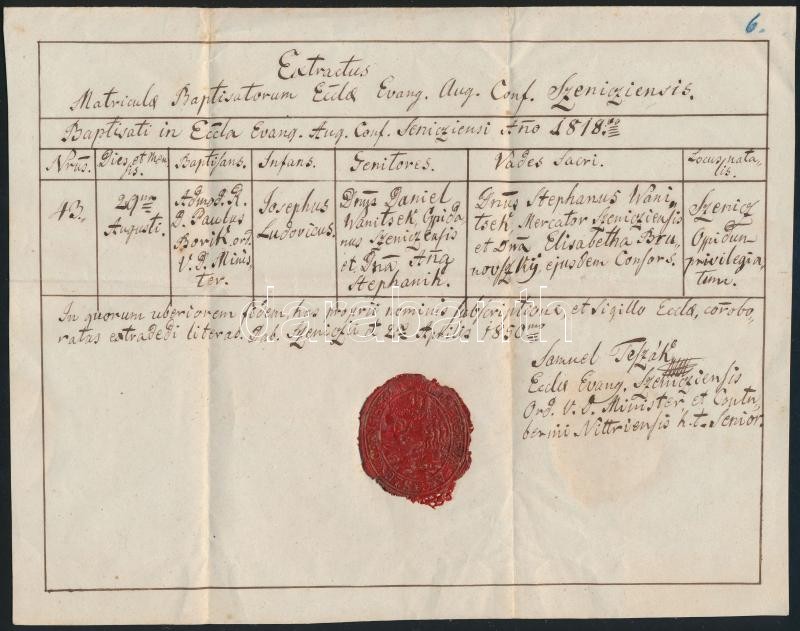 6.
Extractus
Matriculæ Baptisatorum Eccłæ Evang. Aug. Conf. Szenicziensis.
Baptisati in Eccła Evang. Aug. Conf. Senicziensi Año 1818.
Nrus.
Dies et Men-
sis.
Baptisans.
Infans.
Genitores.
Vades Sacri.
Locus nata-
lis.
43.
29na
Augusti.
Admod. R.
D. Paulus
Borik, ord.
V. D. Minis-
ter.
Josephus
Ludovicus.
Dnus Daniel
Wanitsek, Opida-
nus Szeniczensis
et Dna Ana
Stephanik.
Dnus Stephanus Wani-
tsek, Mercator Szenicziensis
et Dna Elisabetha Bru-
novszky, ejusdem Consors.
Szenicz
Oppidum
privilegia-
tum.
In quorum uberiorem fidem, has proprii nominis subscriptione, et Sigillo Eccłæ, corobo-
ratas extradedi literas. Dab. Szeniczia d. 2da Aprilis 1850
Samuel Teszák
Eccłæ Evang. Szenicziensis
Ord. V. D. Minister et Contu-
bernii Nittriensis h. t. Senior.
darabanth